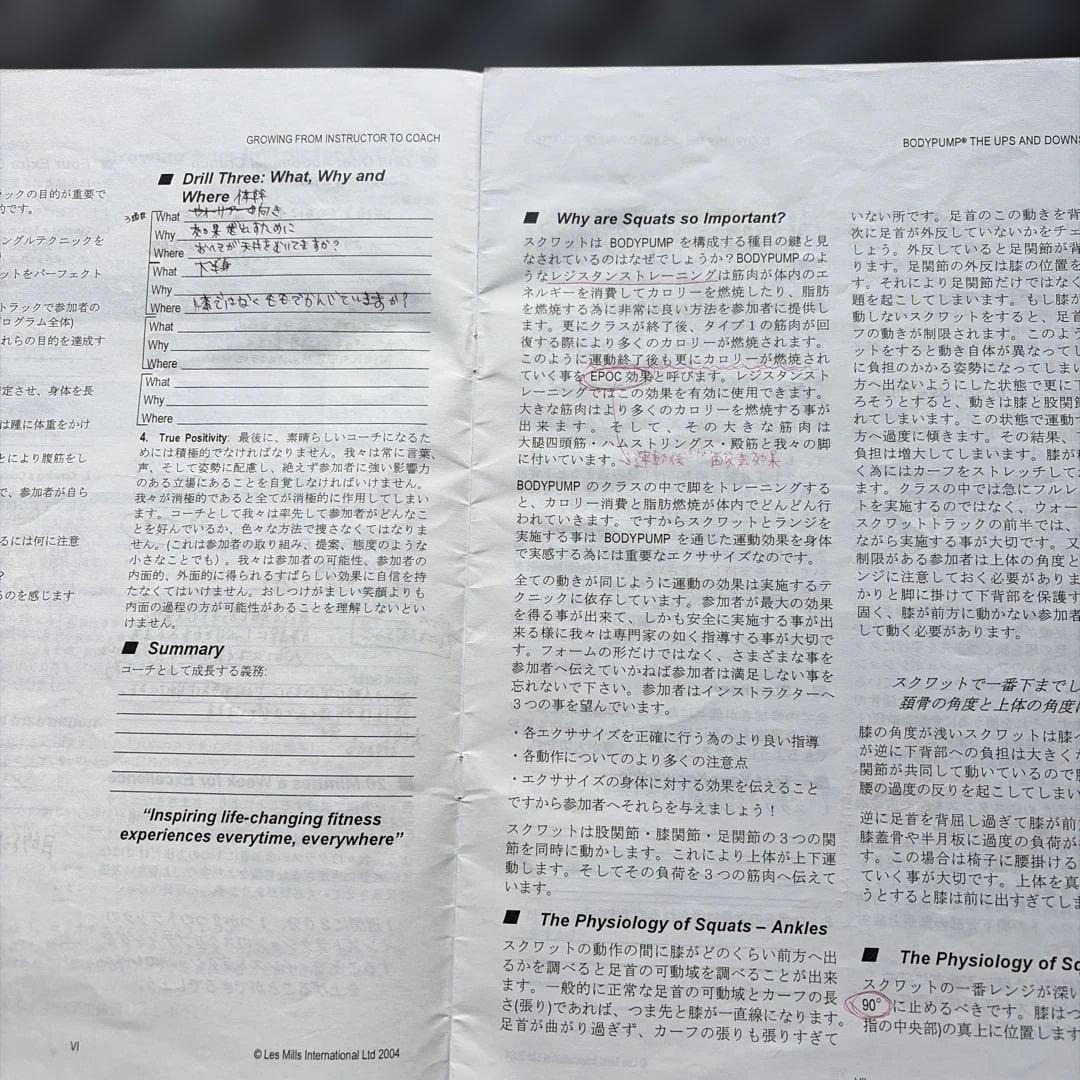 GROWING FROM INSTRUCTOR TO COACH
ックの目的が重要で
的です。
ングルテクニックを
ットをパーフェクト
トラックで参加者の
ログラム全体)
れらの目的を達成す
定させ、身体を長
は踵に体重をかけ
とにより腹筋をし
で、参加者が自ら
るには何に注意
?
るのを感じます
■ Drill Three: What, Why and
Where 体幹
What
Why 効果を出すために
Where おへそが天井をむいてますか?
What 下半身
Why
Where 膝ではなくももでかんじていますか?
What
Why
Where
What
Why
Where
4. True Positivity: 最後に、素晴らしいコーチになるた
めには積極的でなければなりません。我々は常に言葉、
声、そして姿勢に配慮し、絶えず参加者に強い影響力
のある立場にあることを自覚しなければいけません。
我々が消極的であると全てが消極的に作用してしまい
ます。コーチとして我々は率先して参加者がどんなこ
とを好んでいるか、色々な方法で捜さなくてはなりま
せん。(これは参加者の取り組み、提案、態度のような
小さなことでも)。我々は参加者の可能性、参加者の
内面的、外面的に得られるすばらしい効果に自信を持
たなくてはいけません。おしつけがましい笑顔よりも
内面の過程の方が可能性があることを理解しないとい
けません。
■ Summary
コーチとして成長する義務:
“Inspiring life-changing fitness
experiences everytime, everywhere”
VI
© Les Mills International Ltd 2004
BODYPUMP® THE UPS AND DOWNS
■ Why are Squats so Important?
スクワットは BODYPUMP を構成する種目の鍵と見
なされているのはなぜでしょうか?BODYPUMP のよ
うなレジスタンストレーニングは筋肉が体内のエ
ネルギーを消費してカロリーを燃焼したり、脂肪
を燃焼する為に非常に良い方法を参加者に提供し
ます。更にクラスが終了後、タイプ1の筋肉が回
復する際により多くのカロリーが燃焼されます。
このように運動終了後も更にカロリーが燃焼され
ていく事を EPOC 効果と呼びます。レジスタンスト
レーニングではこの効果を有効に使用できます。
大きな筋肉はより多くのカロリーを燃焼する事が
出来ます。そして、その大きな筋肉は
大腿四頭筋・ハムストリングス・殿筋と我々の脚
に付いています。
運動后 酸素効果
BODYPUMP のクラスの中で脚をトレーニングする
と、カロリー消費と脂肪燃焼が体内でどんどん行
われていきます。ですからスクワットとランジを
実施する事は BODYPUMP を通じた運動効果を身体
で実感する為には重要なエクササイズなのです。
全ての動きが同じように運動の効果は実施するテ
クニックに依存しています。参加者が最大の効果
を得る事が出来て、しかも安全に実施する事が出
来る様に我々は専門家の如く指導する事が大切で
す。フォームの形だけではなく、さまざまな事を
参加者へ伝えていかねば参加者は満足しない事を
忘れないで下さい。参加者はインストラクターへ
３つの事を望んでいます。
・各エクササイズを正確に行う為のより良い指導
・各動作についてのより多くの注意点
・エクササイズの身体に対する効果を伝えること
ですから参加者へそれらを与えましょう！
スクワットは股関節・膝関節・足関節の３つの関
節を同時に動かします。これにより上体が上下運
動します。そしてその負荷を３つの筋肉へ伝えて
います。
■ The Physiology of Squats – Ankles
スクワットの動作の間に膝がどのくらい前方へ出
るかを調べると足首の可動域を調べることが出来
ます。一般的に正常な足首の可動域とカーフの長
さ(張り)であれば、つま先と膝が一直線になります。
足首が曲がり過ぎず、カーフの張りも張りすぎて
いない所です。足首のこの動きを背
次に足首が外反していないかをチェ
しょう。外反していると足関節が背
ります。足関節の外反は膝の位置を
す。それにより足関節だけではなく
題を起こしてしまいます。もし膝が
動しないスクワットをすると、足首
フの動きが制限されます。このよう
ットをすると動き自体が異なってし
に負担のかかる姿勢になってしまい
方へ出ないようにした状態で更に下
ろそうとすると、動きは膝と股関節
れてしまいます。この状態で運動す
方へ過度に傾きます。その結果、下
負担は増大してしまいます。膝が
く為にはカーフをストレッチして
ます。クラスの中では急にフルレン
トを実施するのではなく、ウォー
スクワットトラックの前半では、
ながら実施する事が大切です。又
制限がある参加者は上体の角度と
ンジに注意しておく必要がありま
かりと脚に掛けて下背部を保護す
固く、膝が前方に動かない参加者
して動く必要があります。
スクワットで一番下までし
頚骨の角度と上体の角度に
膝の角度が浅いスクワットは膝へ
が逆に下背部への負担は大きくな
関節が共同して動いているので膝
腰の過度の反りを起こしてしまい
逆に足首を背屈し過ぎて膝が前
膝蓋骨や半月板に過度の負荷が
す。この場合は椅子に腰掛ける
ていく事が大切です。上体を真
うとすると膝は前に出すぎてしま
■ The Physiology of Sq
スクワットの一番レンジが深い
90°に止めるべきです。膝はつ
指の中央部)の真上に位置します